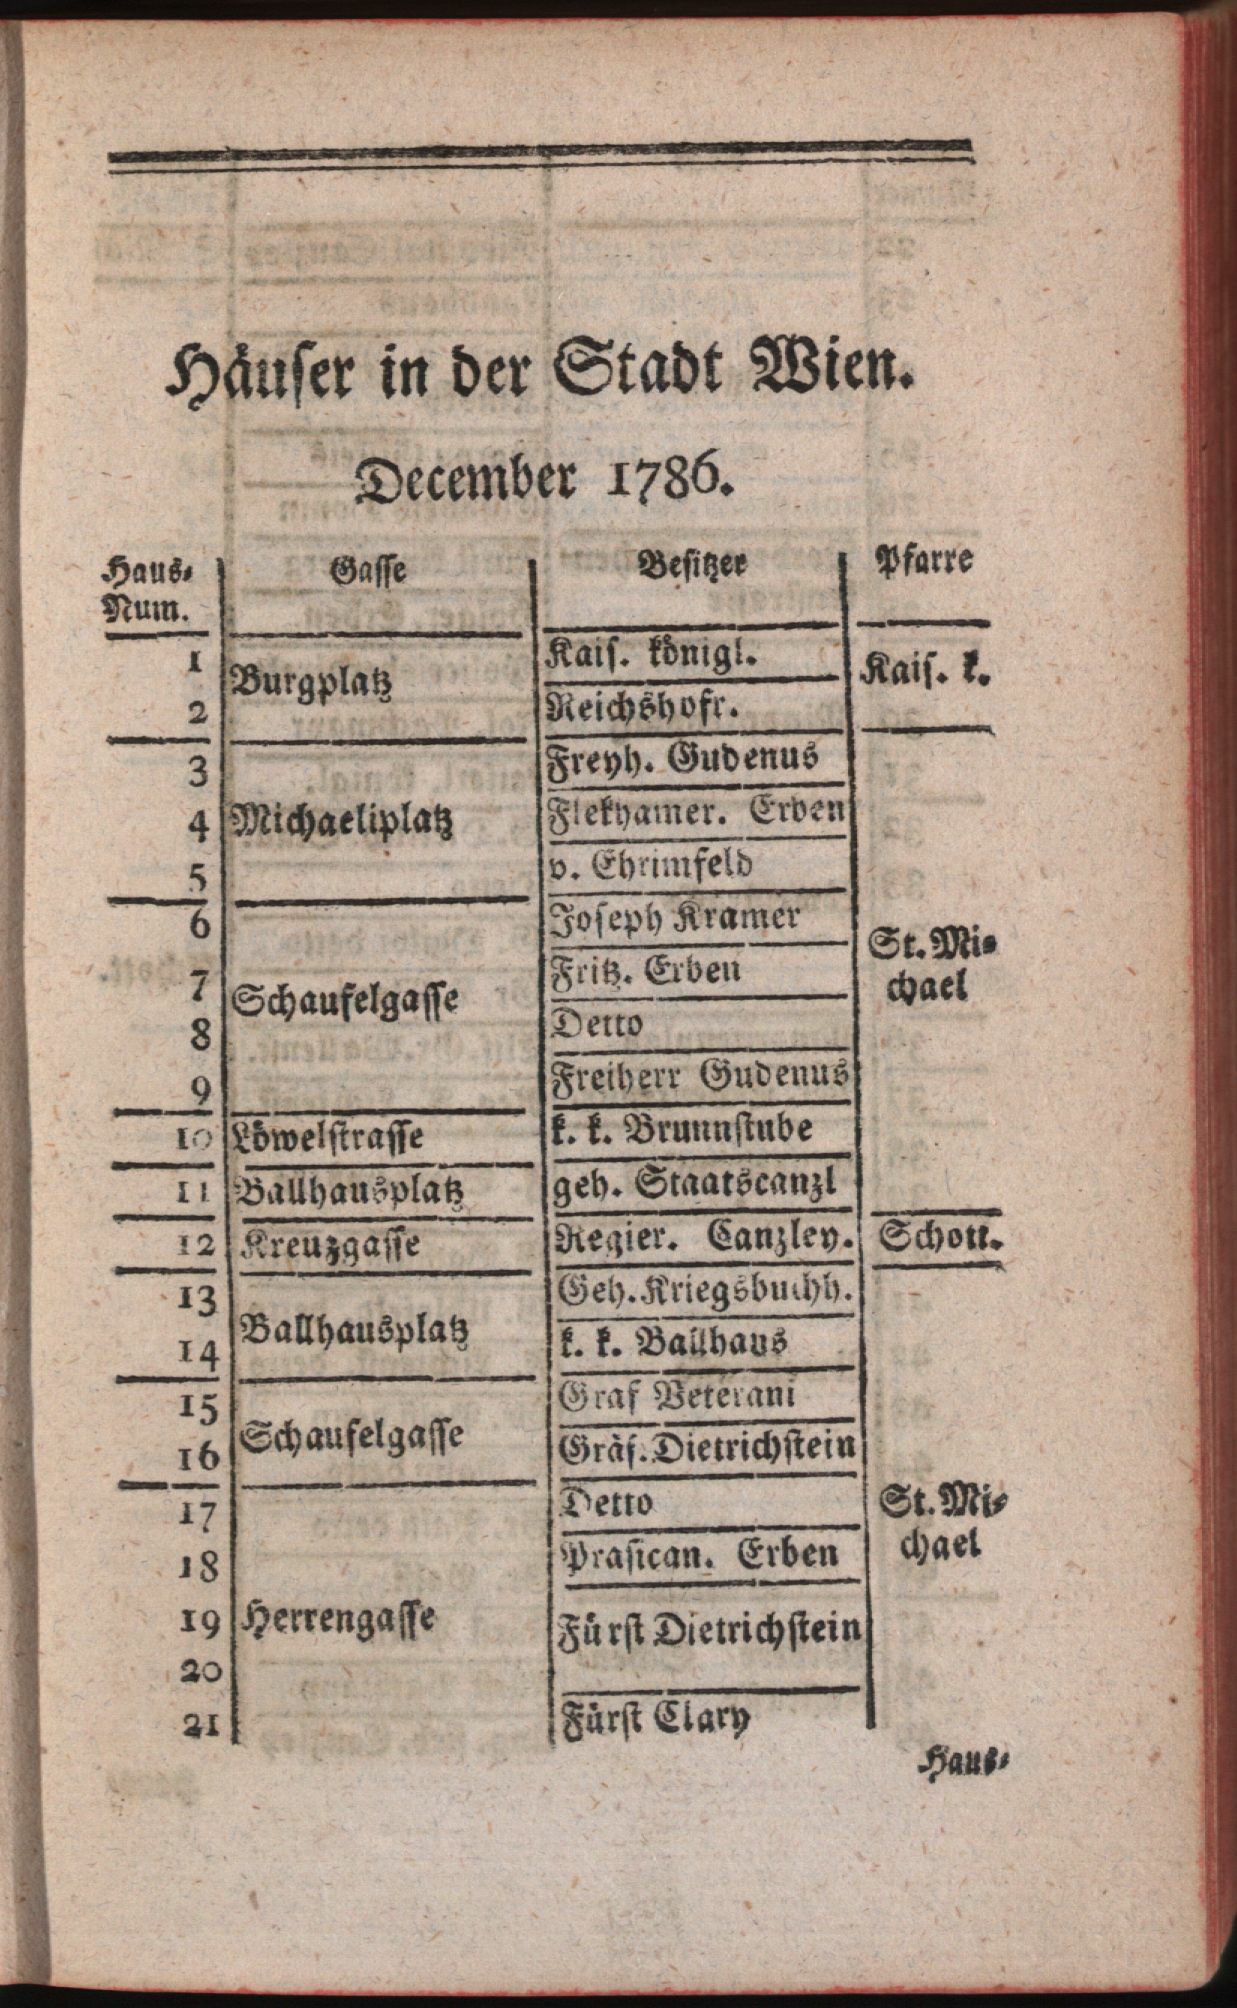 Häuser in der Stadt Wien.
December 1786.
Haus- Gasse Besitzer Pfarre
Num.
1 Burgplatz Kais. königl. Kais. k.
2 Reichshofr.
3 Freyh. Gudenus
4 Michaeliplatz Flekhamer. Erben
5 v. Ehrimfeld
6 Joseph Kramer St. Mi-
7 Schaufelgasse Fritz. Erben chael
8 Detto
9 Freiherr Gudenus
10 Löwelstrasse k. k. Brunnstube
11 Ballhausplatz geh. Staatscanzl
12 Kreuzgasse Regier. Canzley. Schott.
13 Ballhausplatz Geh. Kriegsbuchh.
14 k. k. Ballhaus
15 Schaufelgasse Graf Veterani
16 Gräf. Dietrichstein
17 Detto St. Mi-
18 Prasican. Erben chael
19 Herrengasse Fürst Dietrichstein
20
21 Fürst Clary
Haus-